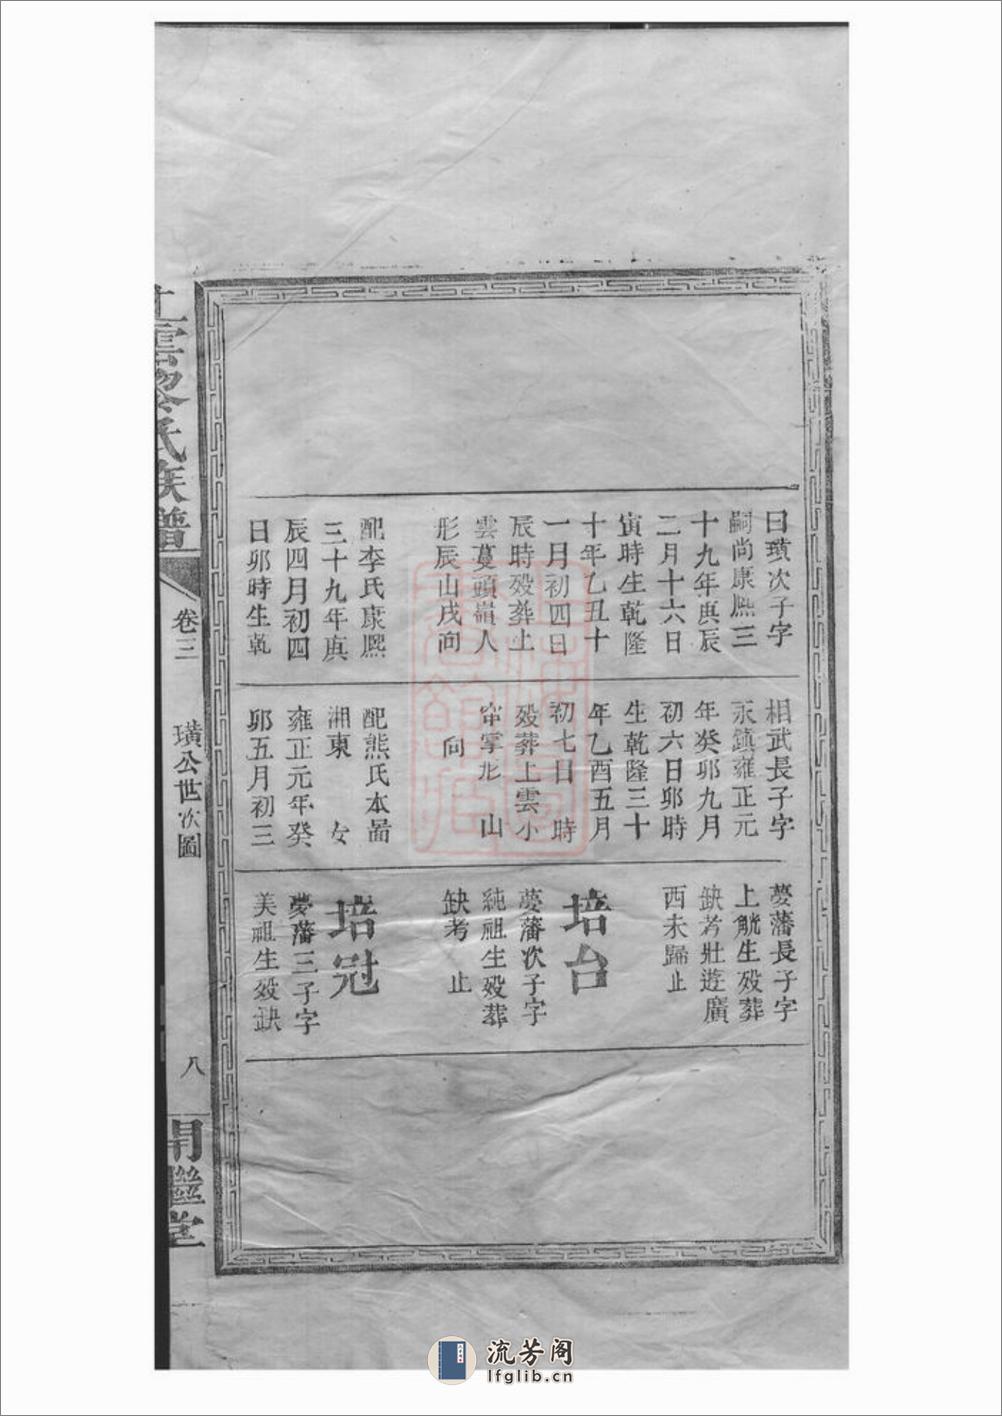 曰璜次子字
嗣尚康熙三
十九年庚辰
二月十六日
寅時生乾隆
十年乙丑十
一月初四日
辰時殁葬上
雲蔓頭嶺人
形辰山戌向
配李氏康熙
三十九年庚
辰四月初四
日卯時生乾
相武長子字
永鎮雍正元
年癸卯九月
初六日卯時
生乾隆三十
年乙酉五月
初七日 時
殁葬上雲小
窂掌形 山
向
配熊氏本啚
湘東 女
雍正元年癸
卯五月初三
夢藩長子字
上觥生殁葬
缺考壯遊廣
西未歸止
培台
夢藩次子字
純祖生殁葬
缺考 止
培冠
夢藩三子字
美祖生殁缺
上雲黎氏族譜
卷三
璜公世次圖
八
開繼堂
流芳阁
lfglib.cn